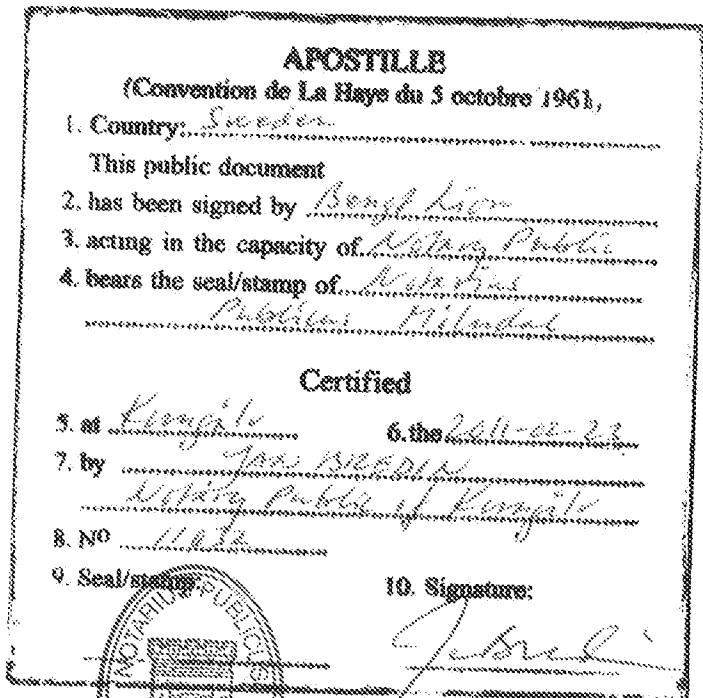 APOSTILLE
(Convention de La Haye du 5 octobre 1961,
1. Country: Sweden
This public document
2. has been signed by Bengt
3. acting in the capacity of Notary Public
4. bears the seal/stamp of Notarius
Publicus Mölndal
Certified
5. at Kungälv 6. the 2011-02-23
7. by JAN BREDIN
Notary Public of Kungälv
8. Nº
9. Seal/stamp: 10. Signature:
NOTARIUS PUBLICUS